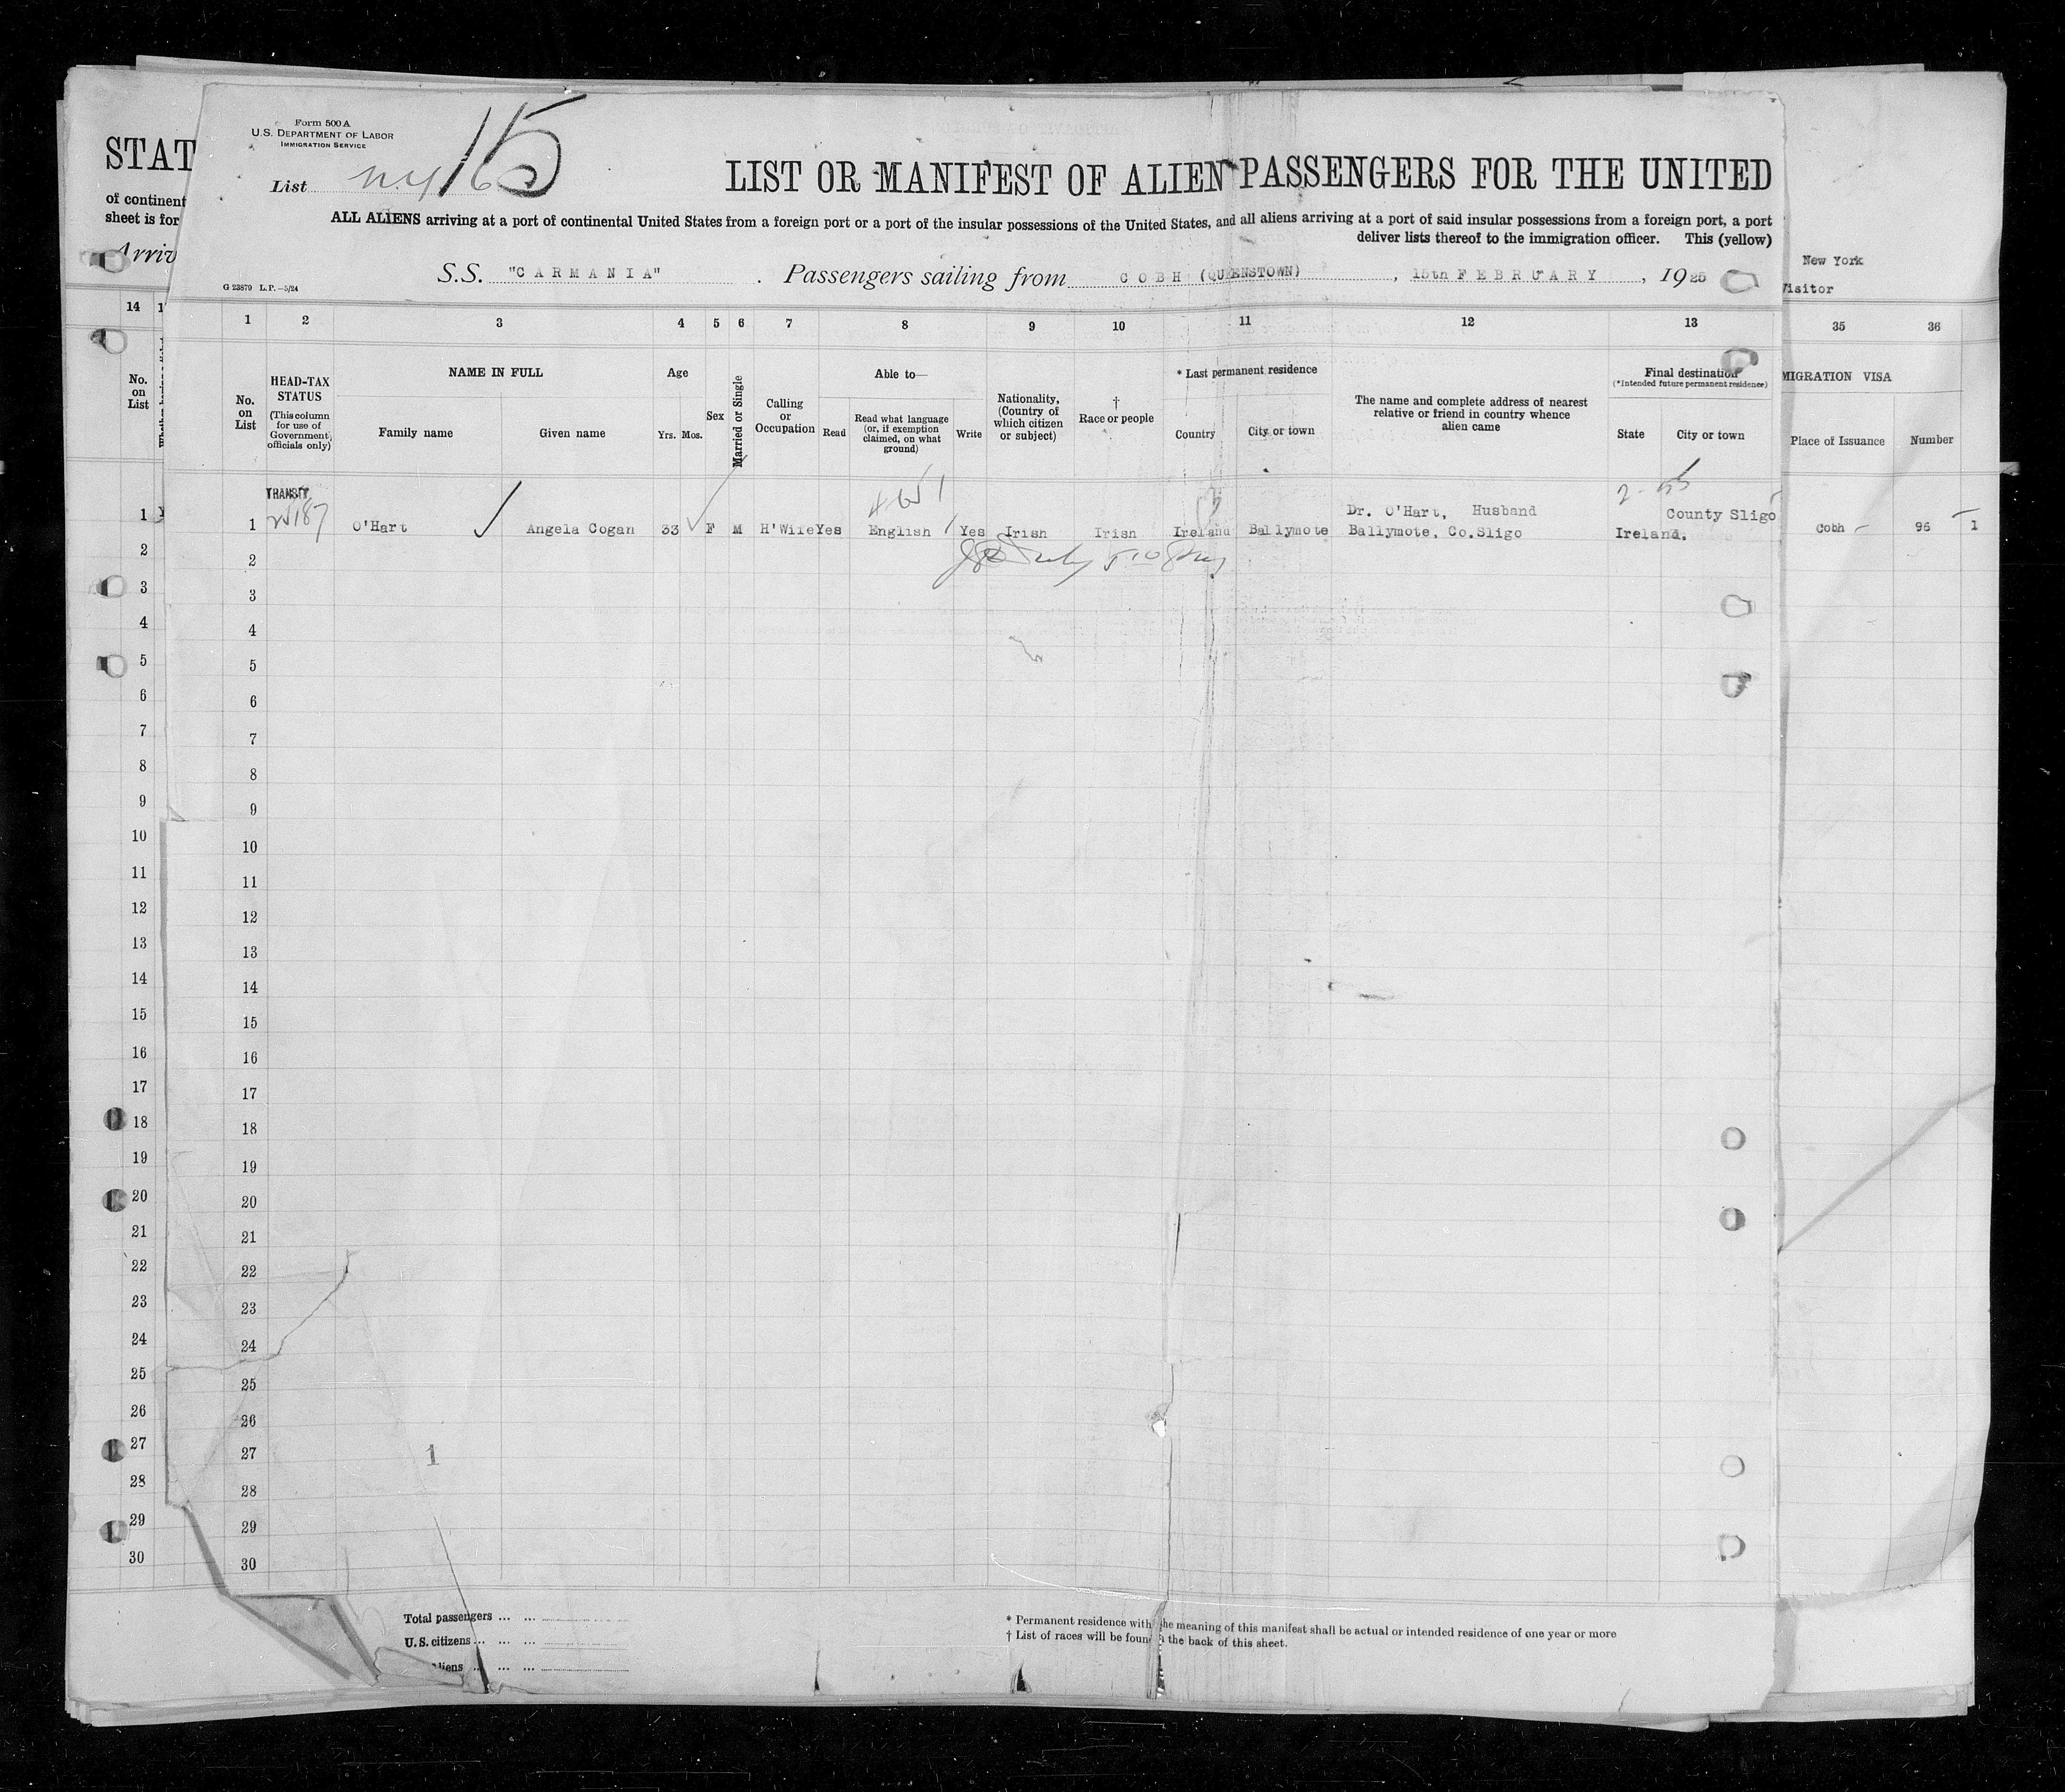 Form 500 A
U.S. DEPARTMENT OF LABOR
IMMIGRATION SERVICE
List N.Y. 15
LIST OR MANIFEST OF ALIEN PASSENGERS FOR THE UNITED
ALL ALIENS arriving at a port of continental United States from a foreign port or a port of the insular possessions of the United States, and all aliens arriving at a port of said insular possessions from a foreign port, a port
deliver lists thereof to the immigration officer. This (yellow)
S.S. "CARMANIA". Passengers sailing from COBH (QUEENSTOWN), 15th FEBRUARY, 1925
G 23879 L.P.—5/24
1 2 3 4 5 6 7 8 9 10 11 12 13
No. on List
HEAD-TAX STATUS
(This column for use of Government officials only)
NAME IN FULL
Family name
Given name
Age
Yrs. Mos.
Sex
Married or Single
Calling or Occupation
Able to—
Read
Read what language (or, if exemption claimed, on what ground)
Write
Nationality, (Country of which citizen or subject)
†
Race or people
* Last permanent residence
Country
City or town
The name and complete address of nearest relative or friend in country whence alien came
Final destination
(*Intended future permanent residence)
State
City or town
TRANSIT
1 O'Hart Angela Cogan 33 F M H'Wife Yes English Yes Irish Irish Ireland Ballymote
Dr. O'Hart, Husband
Ballymote, Co.Sligo
County Sligo
Ireland.
2
3
4
5
6
7
8
9
10
11
12
13
14
15
16
17
18
19
20
21
22
23
24
25
26
27
28
29
30
1
Total passengers ... ...
U.S. citizens ... ... ...
liens ... ...
* Permanent residence with the meaning of this manifest shall be actual or intended residence of one year or more
† List of races will be foun the back of this sheet.
STAT
of continent
sheet is for
Arriv
14
No. on List
1
2
3
4
5
6
7
8
9
10
11
12
13
14
15
16
17
18
19
20
21
22
23
24
25
26
27
28
29
30
New York
Visitor
35 36
MIGRATION VISA
Place of Issuance
Number
Cobh 96 1